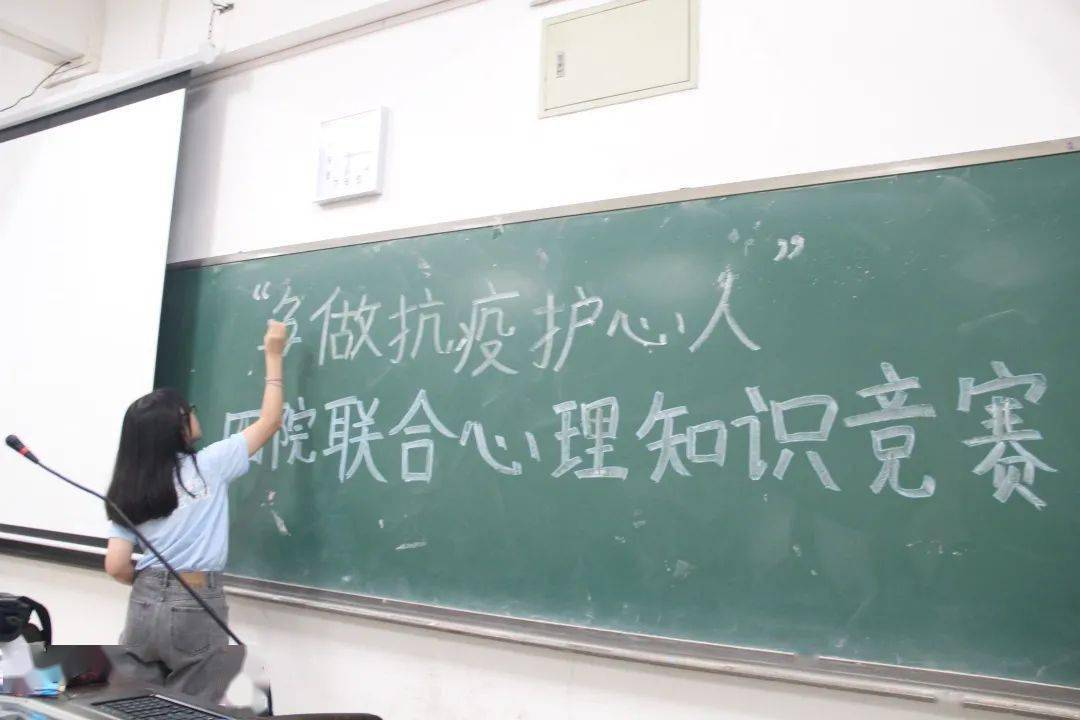 “争做抗疫护心人”
四院联合心理知识竞赛